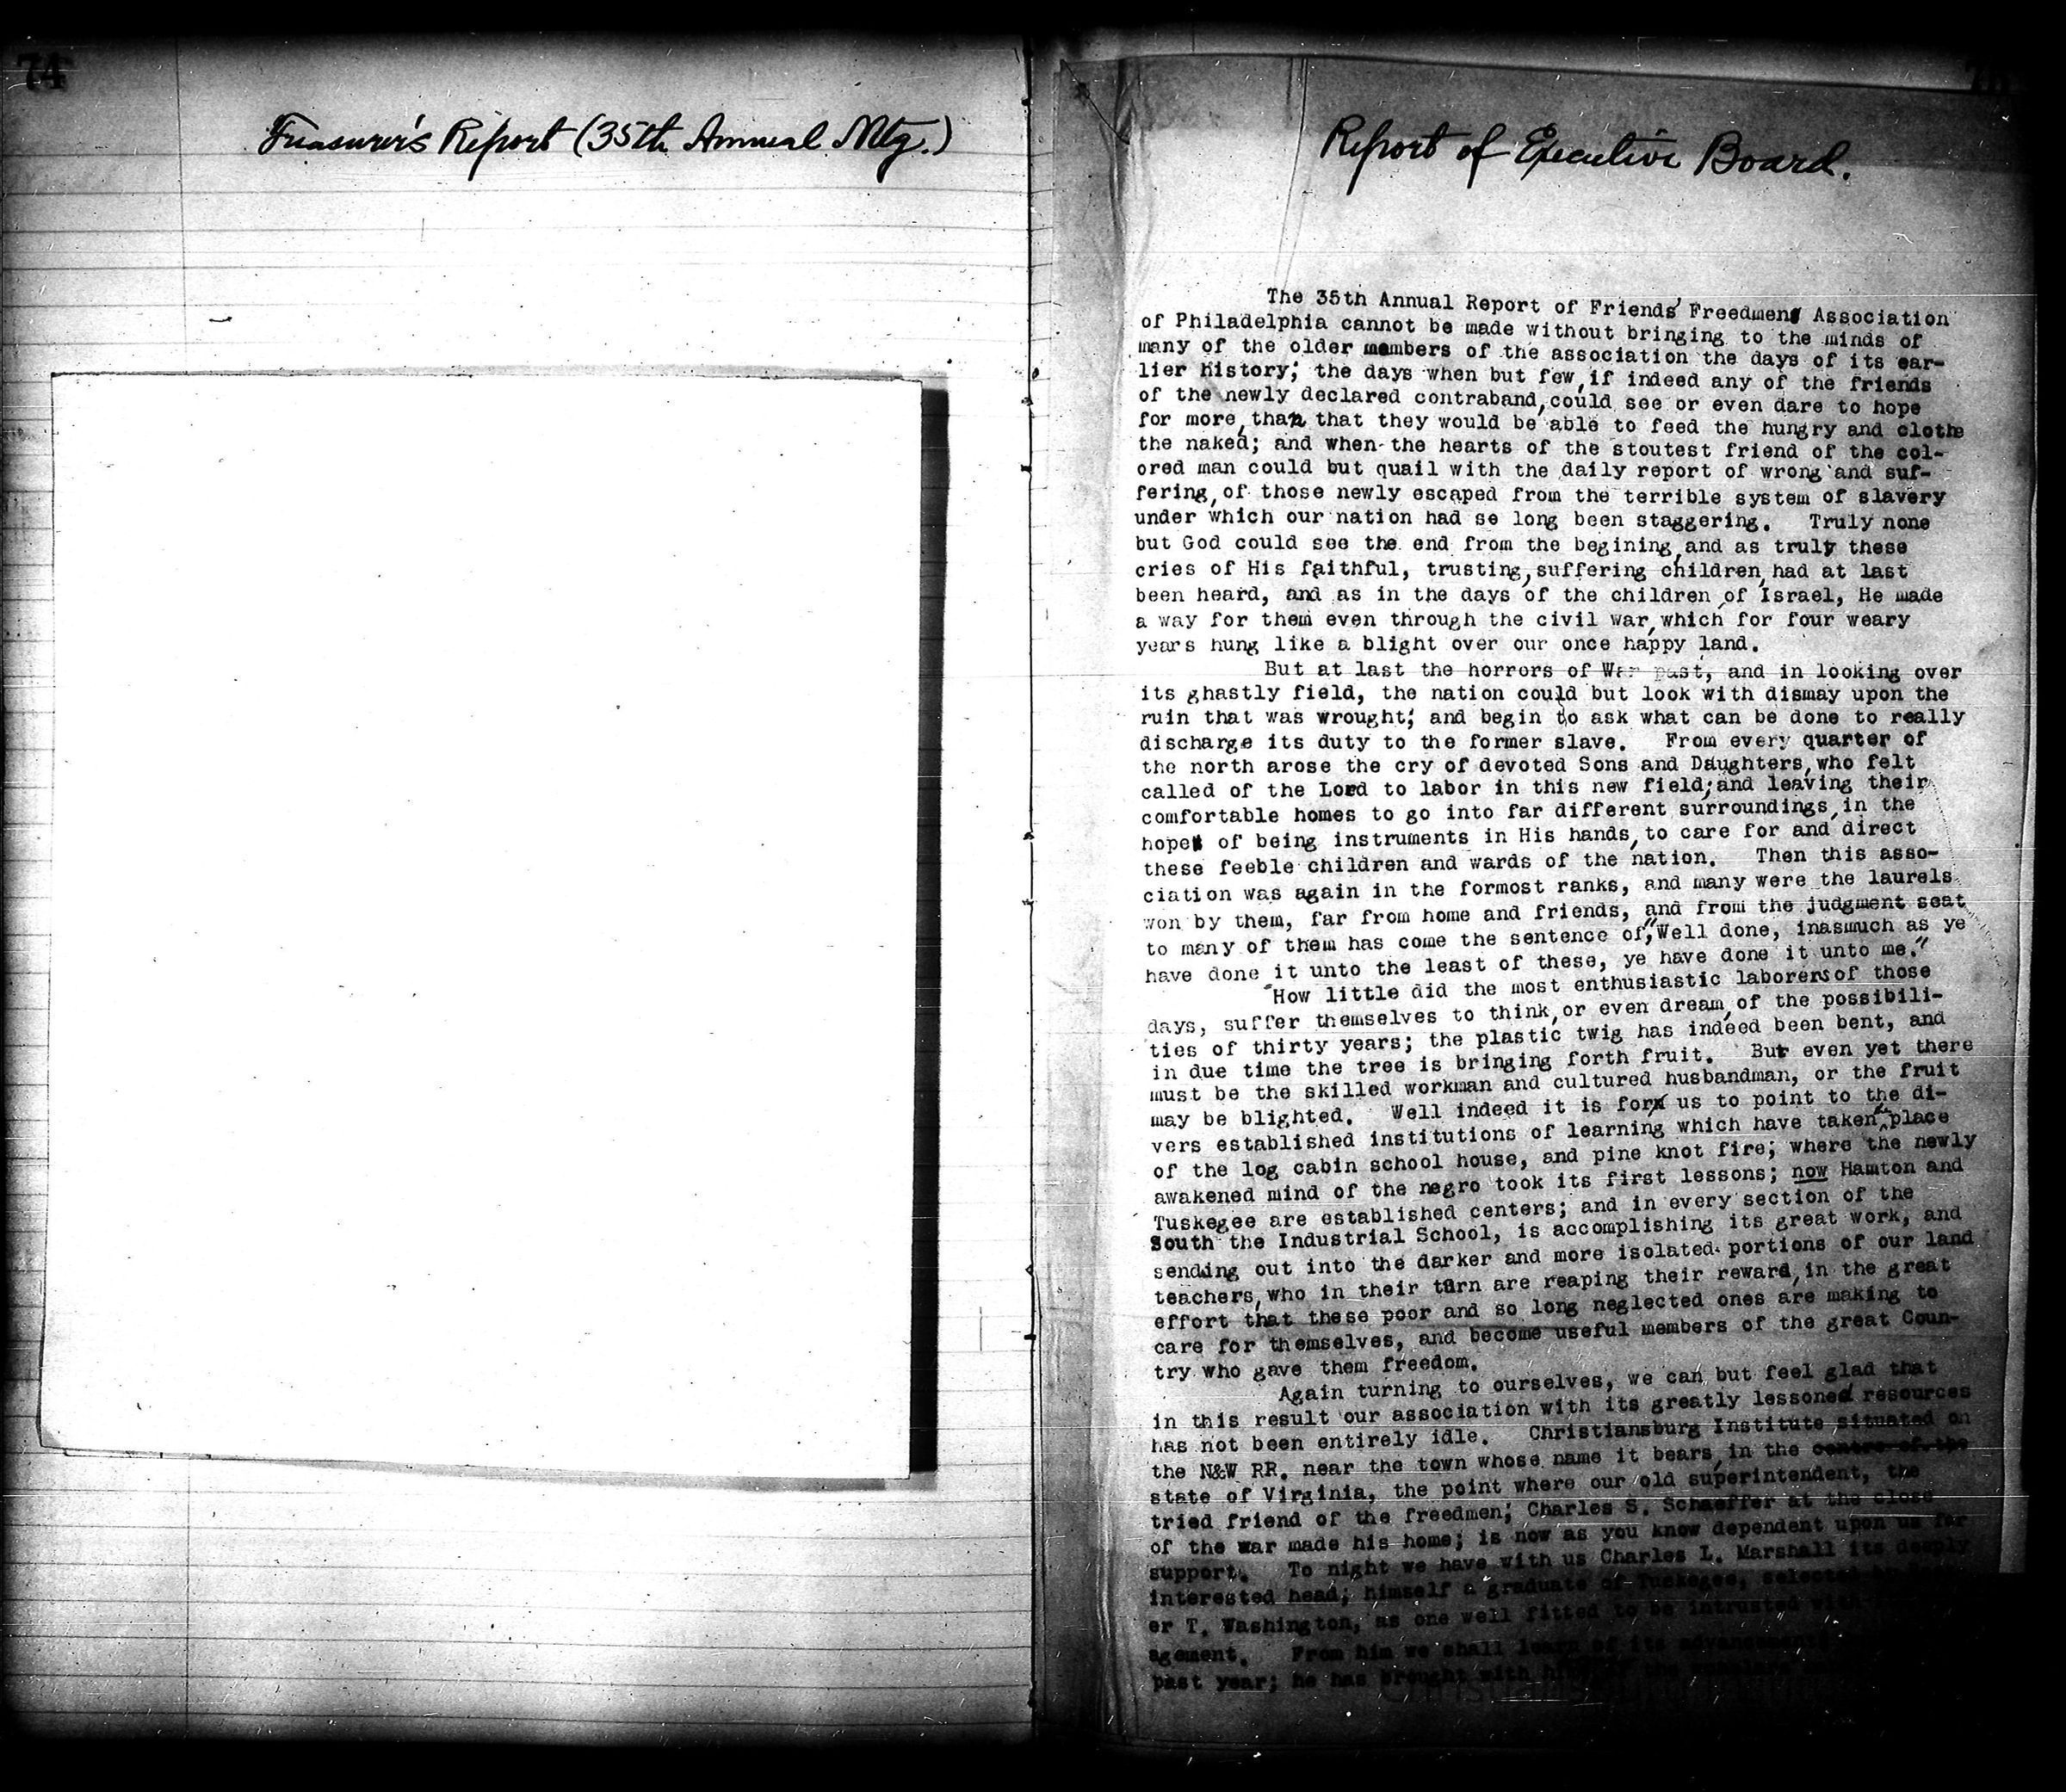 74
Treasurer's Report (35th Annual Mtg.)
Report of Executive Board.
The 35th Annual Report of Friends' Freedmens Association
of Philadelphia cannot be made without bringing to the minds of
many of the older members of the association the days of its ear-
lier history; the days when but few, if indeed any of the friends
of the newly declared contraband, could see or even dare to hope
for more, than that they would be able to feed the hungry and clothe
the naked; and when the hearts of the stoutest friend of the col-
ored man could but quail with the daily report of wrong and suf-
fering, of those newly escaped from the terrible system of slavery
under which our nation had so long been staggering. Truly none
but God could see the end from the begining, and as truly these
cries of His faithful, trusting, suffering children, had at last
been heard, and as in the days of the children of Israel, He made
a way for them even through the civil war, which for four weary
years hung like a blight over our once happy land.
But at last the horrors of War past, and in looking over
its ghastly field, the nation could but look with dismay upon the
ruin that was wrought; and begin to ask what can be done to really
discharge its duty to the former slave. From every quarter of
the north arose the cry of devoted Sons and Daughters, who felt
called of the Lord to labor in this new field; and leaving their
comfortable homes to go into far different surroundings, in the
hope of being instruments in His hands, to care for and direct
these feeble children and wards of the nation. Then this asso-
ciation was again in the formost ranks, and many were the laurels
won by them, far from home and friends, and from the judgment seat
to many of them has come the sentence of, "Well done, inasmuch as ye
have done it unto the least of these, ye have done it unto me."
How little did the most enthusiastic laborers of those
days, suffer themselves to think, or even dream, of the possibili-
ties of thirty years; the plastic twig has indeed been bent, and
in due time the tree is bringing forth fruit. But even yet there
must be the skilled workman and cultured husbandman, or the fruit
may be blighted. Well indeed it is for us to point to the di-
vers established institutions of learning which have taken the place
of the log cabin school house, and pine knot fire; where the newly
awakened mind of the negro took its first lessons; now Hamton and
Tuskegee are established centers; and in every section of the
South the Industrial School, is accomplishing its great work, and
sending out into the darker and more isolated portions of our land
teachers, who in their turn are reaping their reward, in the great
effort that these poor and so long neglected ones are making to
care for themselves, and become useful members of the great Coun-
try who gave them freedom.
Again turning to ourselves, we can but feel glad that
in this result our association with its greatly lessoned resources
has not been entirely idle. Christiansburg Institute situated on
the N&W RR. near the town whose name it bears, in the centre of the
state of Virginia, the point where our old superintendent, the
tried friend of the freedmen; Charles S. Schaeffer at the close
of the war made his home; is now as you know dependent upon us for
support. To night we have with us Charles L. Marshall its deeply
interested head; himself a graduate of Tuskegee, selected
er T. Washington, as one well fitted to be intrusted with
agement. From him we shall learn of its advancement
past year; he has brought with him